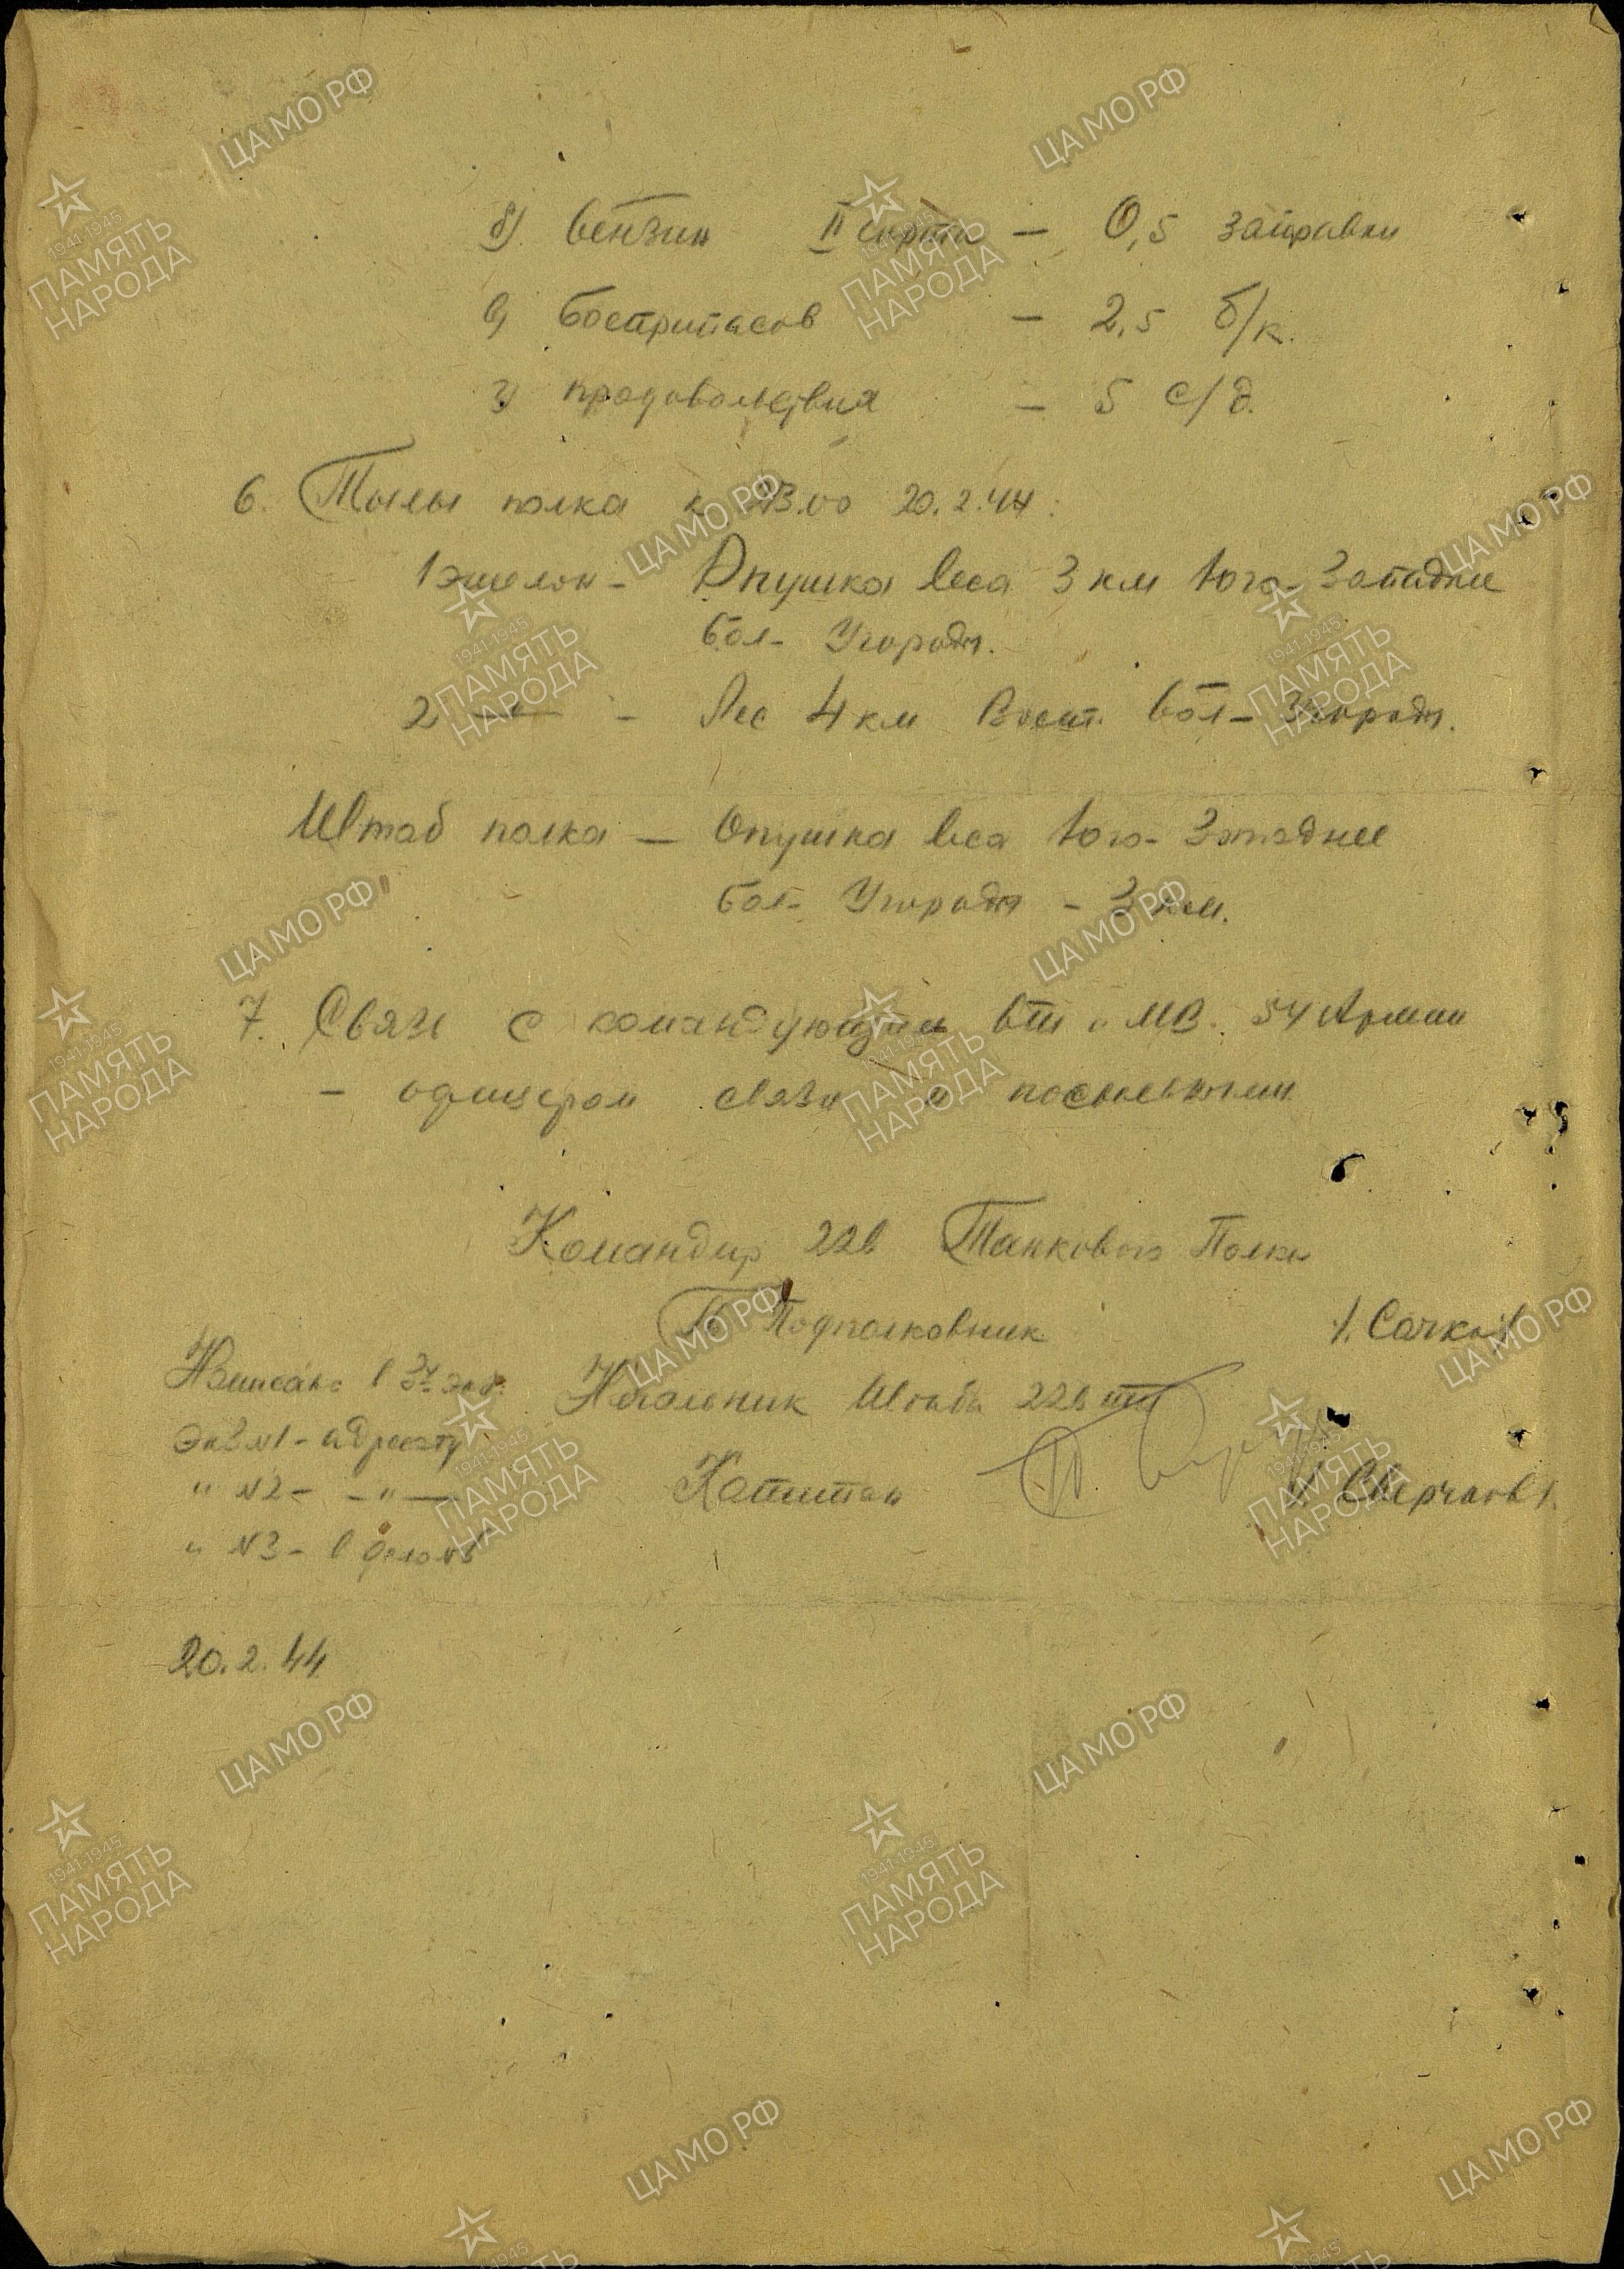 б) бензин II сорта — 0,5 заправки
в) боеприпасов — 2,5 б/к.
г) продовольствия — 5 с/д.
6. Тылы полка к 23.00 20.2.44:
1 эшелон - Опушка леса 3 км Юго-Западнее
Бол- Угороды.
2 —"— - Лес 4 км Вост. Бол- Угороды.
Штаб полка — Опушка леса Юго-Западнее
Бол- Угороды - 3 км.
7. Связь с командующим БТ и МВ. 54 Армии
- офицером связи и посыльными
Командир 226 Танкового Полка
Подполковник /. Сачков/
Написано в 3х экз. Начальник Штаба 226 тп
Экз №1 - адресату
" №2 - -"— Капитан /. Сверчков/.
" №3 - в дело
20.2.44
ЦАМО РФ
1941-1945
ПАМЯТЬ
НАРОДА